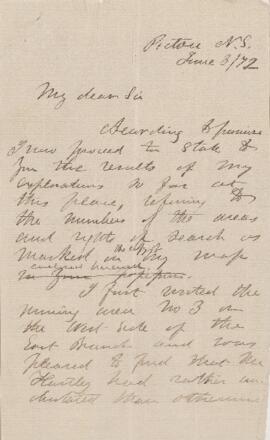 Pictou N.S.
June 3/72
My dear Sir
According to promise
I now proceed to state to
you the results of my
explorations so far at
this place, referring to
the numbers of the areas
and rights of search as
marked on the map
enclosed herewith
I first visited the
mining area No 3 on
the West Side of the
East Branch and was
pleased to find that Mr
Hartley had rather un
than otherwise